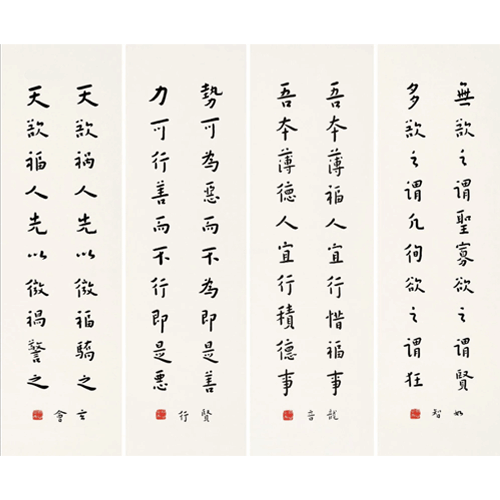 無欲之謂聖寡欲之謂賢
多欲之謂凡徇欲之謂狂
如智
吾本薄福人宜行惜福事
吾本薄德人宜行積德事
龍音
勢可為惡而不為即是善
力可行善而不行即是惡
賢行
天欲禍人先以微福驕之
天欲福人先以微禍警之
玄會